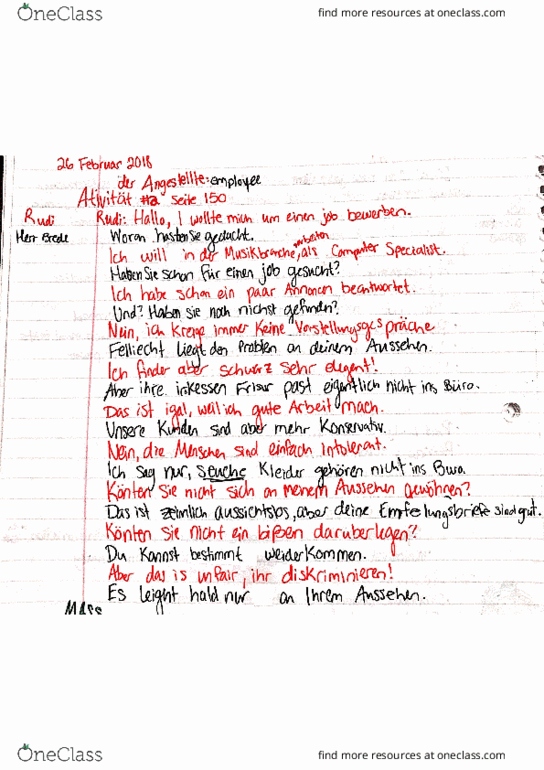 OneClass
find more resources at oneclass.com
26 Februar 2018
der Angestellte: employee
Ativität #2 Seite 150
Rudi
Rudi: Hallo, I wollte mich um einen job bewerben.
Herr Brede
Woran hasten Sie gedacht.
arbeiten
Ich will in der Musikbranche, als Computer Specialist.
Haben Sie schon für einen job gesucht?
Ich habe schon ein paar Annoncen beantwortet.
Und? Haben sie noch nichst gefunden?
Nein, ich Kreige immer Keine Vorstellungsgespräche
Felliecht liegt den Problem an deinem Aussehen.
Ich finder aber schwarz sehr elegent!
Aber ihre Frisur past eigentlich nicht ins Büro.
Das ist igal, weil ich gute Arbeit mach.
Unsere Kunden sind aber mehr Konservativ.
Nein, die Menschen sind einfach intolerant.
Ich sag nur, Kleider gehören nicht ins Buro.
Könten Sie nicht sich an meinem Aussehen gewöhnen?
Das ist zeimlich aussichtslos, aber deine Empfelungsbriefe sind gut.
Könten Sie nicht ein bißen daruberlegen?
Du Kannst bestimmt weiderKommen.
Aber das is unfair, ihr diskriminieren!
Es leight hald nur an Ihrem Aussehen.
OneClass
find more resources at oneclass.com